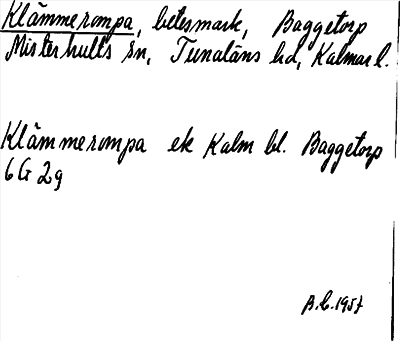 Klämmerompa, betesmark, Baggetorp
Misterhults sn, Tunaläns hd, Kalmar l.
Klämmerompa ek Kalm bl. Baggetorp
6 G 2g
B.L. 1957